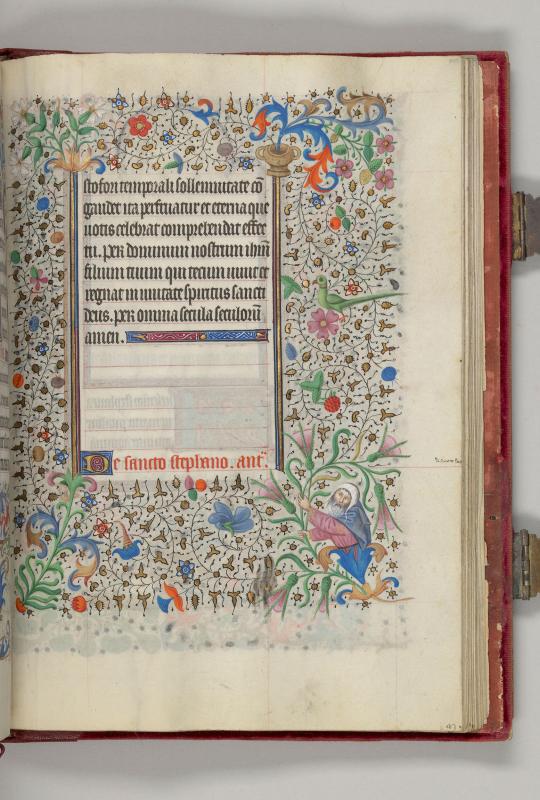 stofori temporali sollemnitate cō
gaudet ita perfruatur et eterna que
uotis celebrat comprehendat effec
tu. Per dominum nostrum ihm̄
filium tuum qui tecum uiuit et
regnat in unitate spiritus sancti
deus. per omnia secula seculorū
amen.
De sancto stephano. ant.